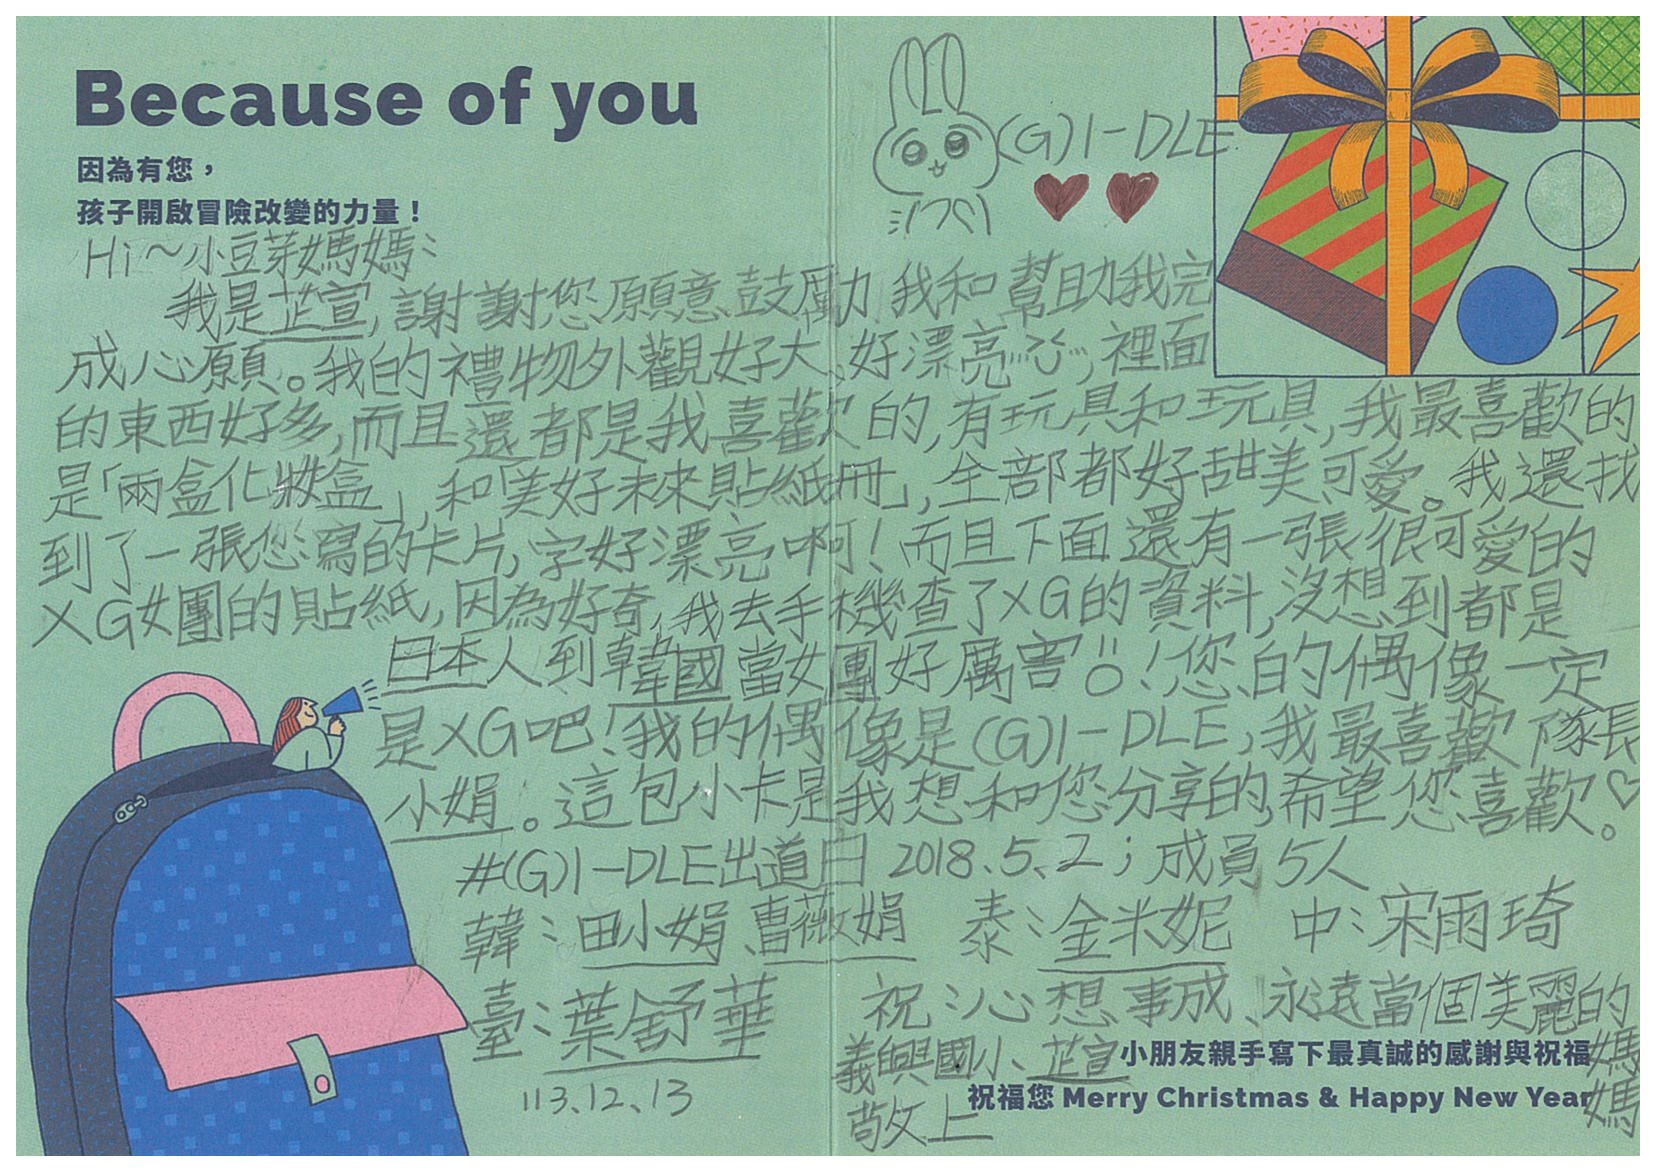 Because of you
因為有您，
孩子開啟冒險改變的力量！
(G)I-DLE
Hi～小豆芽媽媽：
我是芷宣，謝謝您願意鼓勵我和幫助我完
成心願。我的禮物外觀好大、好漂亮，裡面
的東西好多，而且還都是我喜歡的，有玩具和玩具，我最喜歡的
是「兩盒化妝盒」，和「美好未來貼紙冊」，全部都好甜美可愛。我還找
到了一張您寫的卡片，字好漂亮啊！而且下面還有一張很可愛的
XG女團的貼紙，因為好奇，我去手機查了XG的資料，沒想到都是
日本人到韓國當女團好厲害！您的偶像一定
是XG吧！我的偶像是(G)I-DLE，我最喜歡隊長
小娟。這包小卡是我想和您分享的，希望您喜歡♡。
#(G)I-DLE出道日2018.5.2；成員5人
韓：田小娟、曹薇娟 泰：金米妮 中：宋雨琦
臺：葉舒華
祝：心想事成、永遠當個美麗的
媽媽
義興國小、芷宣
敬上
113.12.13
小朋友親手寫下最真誠的感謝與祝福
祝福您 Merry Christmas & Happy New Year